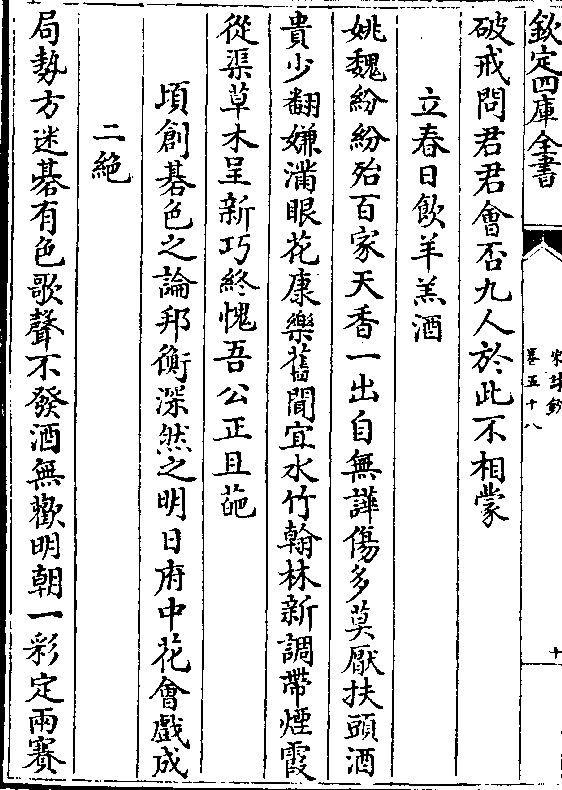 欽定四庫全書
宋詩鈔
卷五十八
十
破戒問君君會否九人於此不相蒙
立春日飲羊羔酒
姚魏紛紛殆百家天香一出自無譁傷多莫厭扶頭酒
貴少翻嫌滿眼花康樂舊聞宜水竹翰林新調帶煙霞
從渠草木呈新巧終愧吾公正且葩
頃創碁色之論邦衡深然之明日府中花會戲成
二絶
局勢方迷碁有色歌聲不發酒無歡明朝一彩定兩賽